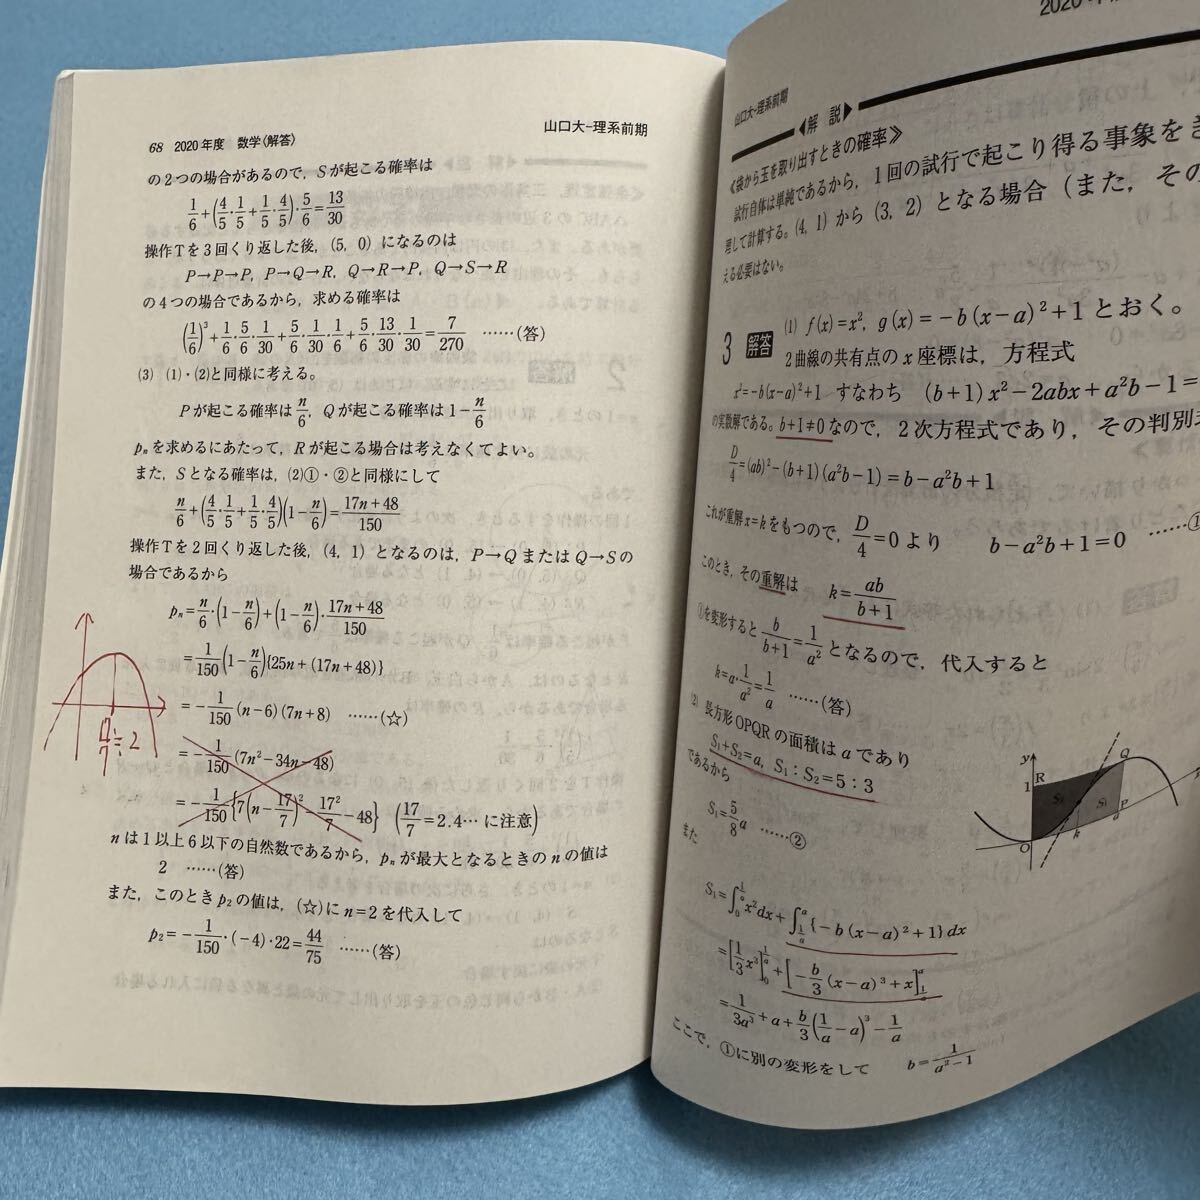 68 2020年度 数学〈解答〉
山口大-理系前期
の2つの場合があるので, Sが起こる確率は
1/6+(4/5・1/5+1/5・4/5)・5/6=13/30
操作Tを3回くり返した後, (5, 0) になるのは
P→P→P, P→Q→R, Q→R→P, Q→S→R
の4つの場合であるから, 求める確率は
(1/6)³+1/6・5/6・1/30+5/6・1/30・1/6+5/6・13/30・1/30=7/270 ……(答)
(3) (1)・(2)と同様に考える。
Pが起こる確率は n/6, Qが起こる確率は 1−n/6
pₙを求めるにあたって, Rが起こる場合は考えなくてよい。
また, Sとなる確率は, (2)①・②と同様にして
n/6+(4/5・1/5+1/5・4/5)(1−n/6)=17n+48/150
操作Tを2回くり返した後, (4, 1) となるのは, P→QまたはQ→Sの
場合であるから
pₙ=n/6・(1−n/6)+(1−n/6)・17n+48/150
=1/150(1−n/6){25n+(17n+48)}
=−1/150(n−6)(7n+8) ……(☆)
=−1/150(7n²−34n−48)
=−1/150{7(n−17/7)²−17²/7−48} (17/7=2.4…に注意)
17/7≒2
nは1以上6以下の自然数であるから, pₙが最大となるときのnの値は
2 ……(答)
また, このときp₂の値は, (☆)にn=2を代入して
p₂=−1/150・(−4)・22=44/75 ……(答)
山口大-理系前期
◀解 説▶
≪袋から玉を取り出すときの確率≫
試行自体は単純であるから, 1回の試行で起こり得る事象をき
理して計算する。(4, 1) から (3, 2) となる場合 (また, その
える必要はない。
3 解答 (1) f(x)=x², g(x)=−b(x−a)²+1とおく。
2曲線の共有点のx座標は, 方程式
x²=−b(x−a)²+1 すなわち (b+1)x²−2abx+a²b−1=
の実数解である。b+1≠0なので, 2次方程式であり, その判別
D/4=(ab)²−(b+1)(a²b−1)=b−a²b+1
これが重解x=kをもつので, D/4=0より b−a²b+1=0 ……①
このとき, その重解は k=ab/b+1
①を変形すると b/b+1=1/a² となるので, 代入すると
k=a・1/a²=1/a ……(答)
(2) 長方形OPQRの面積はaであり
S₁+S₂=a, S₁:S₂=5:3
であるから
S₁=5/8a ……②
また
y
R
Q
1
S₂
S₁
P
O
k
a
S₁=∫₀^(1/a) x²dx+∫_(1/a)^a {−b(x−a)²+1}dx
=[1/3x³]₀^(1/a)+[−b/3(x−a)³+x]_(1/a)^a
=1/3a³+a+b/3(1/a−a)³−1/a
ここで, ①に別の変形をして b=1/a²−1